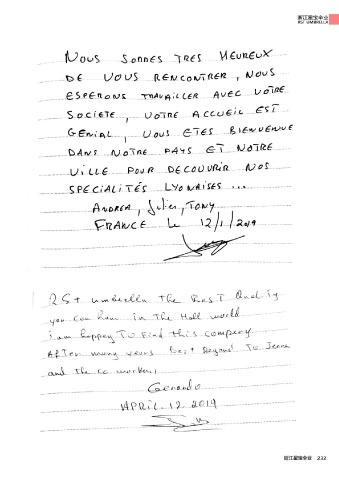 浙江星宝伞业
RST UMBRELLA
NOUS SOMMES TRES HEUREUX
DE VOUS RENCONTRER, NOUS
ESPERONS TRAVAILLER AVEC VOTRE
SOCIETE, VOTRE ACCUEIL EST
GENIAL, VOUS ETES BIENVENUE
DANS NOTRE PAYS ET NOTRE
VILLE POUR DECOUVRIR NOS
SPECIALITÉS LYONAISES ...
ANDREA, Julien, TONY
FRANCE Le 12/1/2019
RSt umbrella the BesT Quality
you can have in The Hall world
i am happy To Find this company
AFTer many years best Regard To Jenna
and the co workers,
Gerardo
APRIL.12.2019
浙江星宝伞业 232